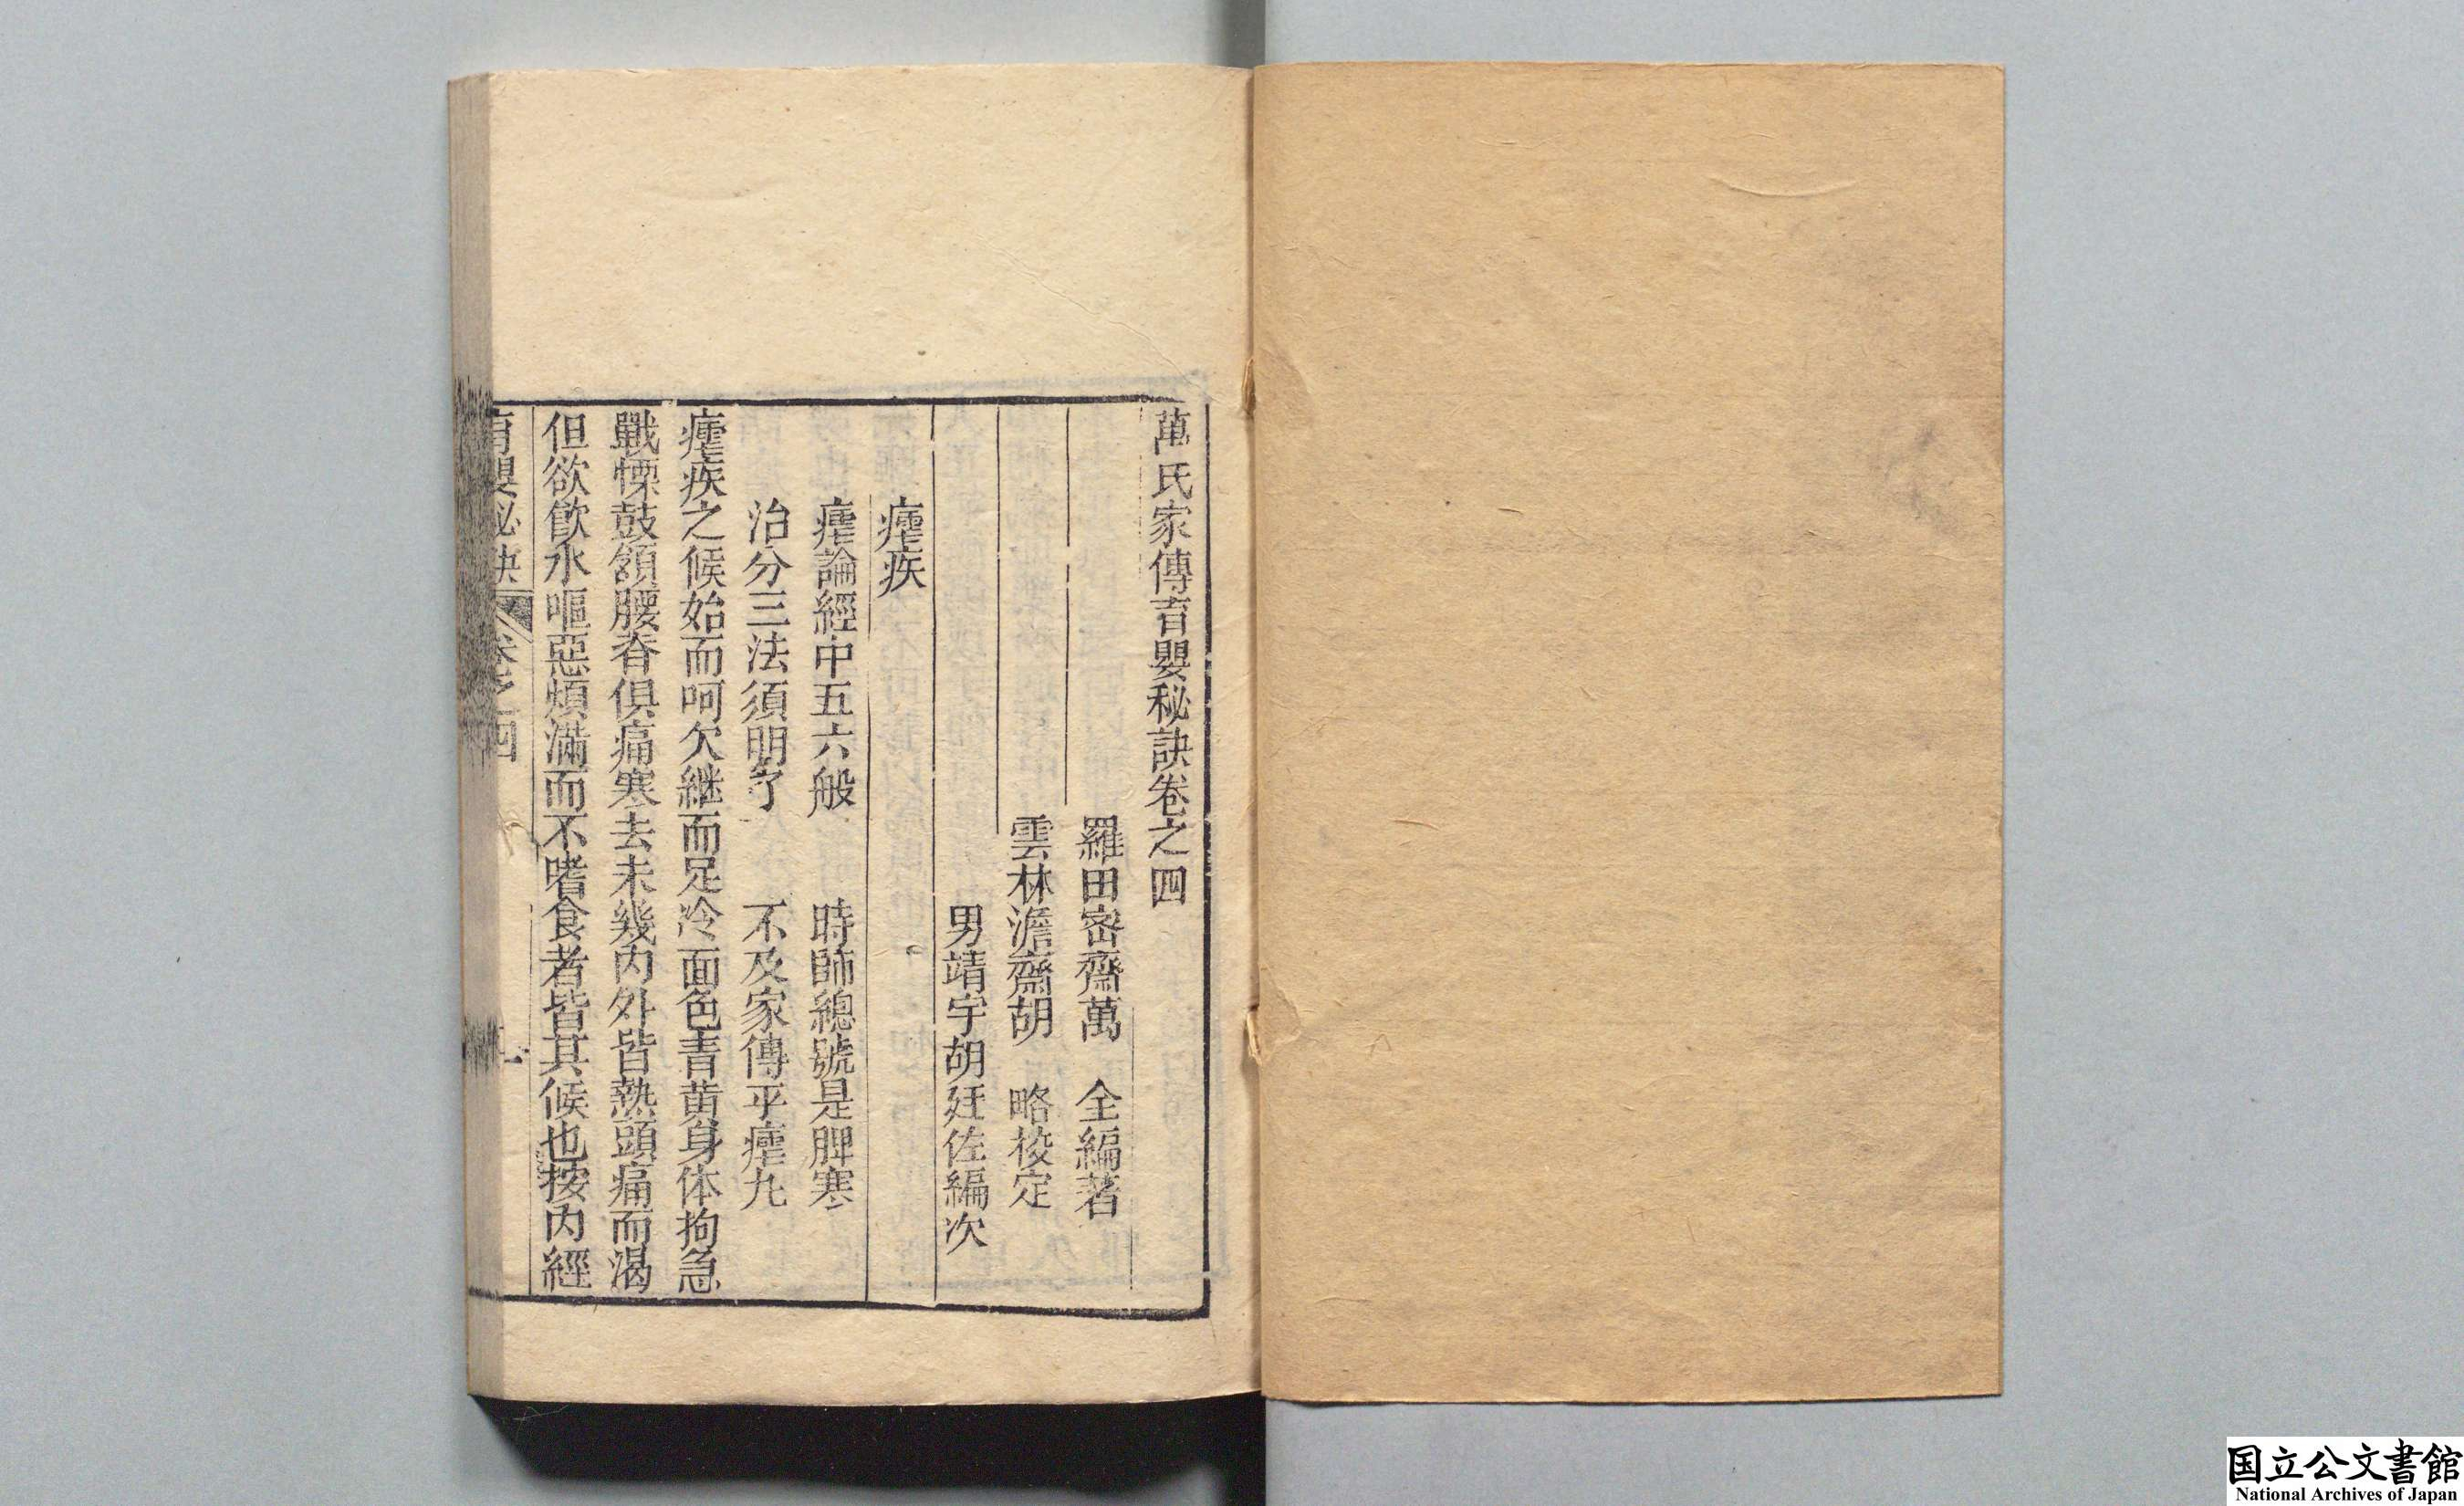 萬氏家傳育嬰秘訣卷之四
羅田密齋萬　全編著
雲林澹齋胡　略校定
男靖宇胡廷佐編次
瘧疾
瘧論經中五六般　時師總號是脾寒
治分三法須明了　不及家傳平瘧丸
瘧疾之候始而呵欠継而足冷面色青黄身体拘急
戰慄鼓頷腰脊俱痛寒去未幾内外皆熱頭痛而渴
但欲飲水嘔惡煩滿而不嗜食者皆其候也按内經
育嬰秘訣　卷之四　一
国立公文書館
National Archives of Japan